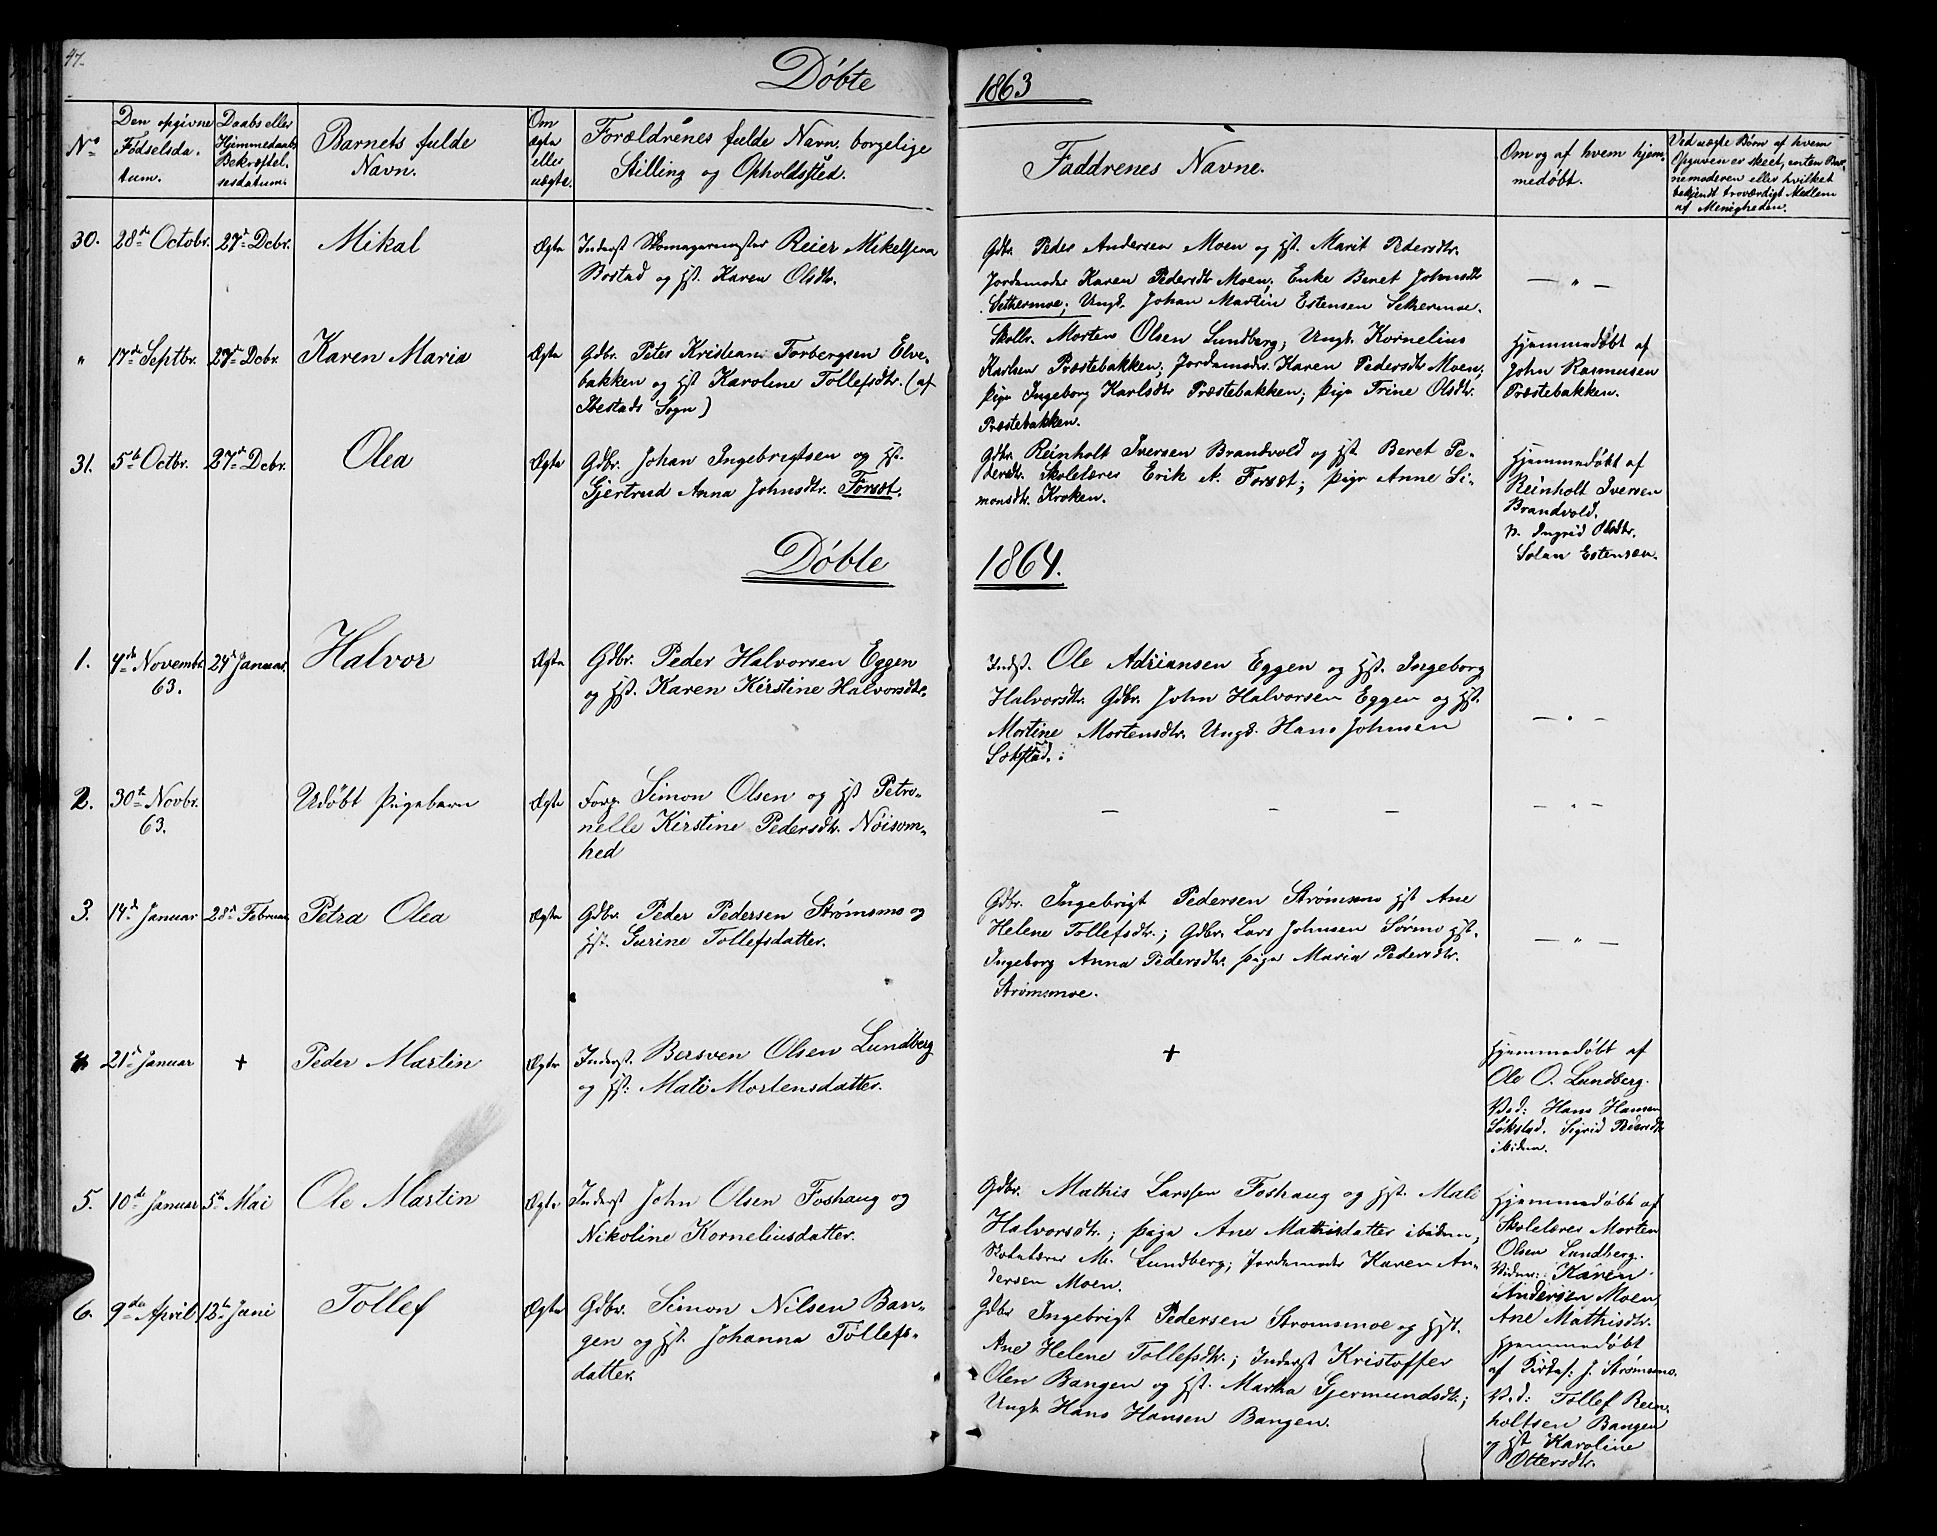 47.
Døbte 1863
No
Den opgivne Fødselsda- tum.
Daabs eller Hjemmedaabs Bekræftel- sesdatum.
Barnets fulde Navn.
Om ægte eller uægte.
Forældrenes fulde Navn, borgelige Stilling og Opholdssted.
Faddrenes Navne.
Om og af hvem hjem- medøbt.
Ved uægte Børn af hvem Opgaven er skeet, enten Bar- nemoderen eller hvilket bekjendt troværdigt Medlem af Menigheden.
30. 28de Octobr. 27de Dcbr. Mikal Ægte
Inderst Skomagermester Reier Mikelsen
Bostad og Hst. Karen Olsdtr.
Gdbr. Peder Andersen Moen og Hst. Marit Pedersdtr.
Jordemoder Karen Pedersdtr Moen; Enke Beret Johnsdtr
Sethermoe; Ungk. Johan Martin Estensen Sethermoe.
— " —
" 17de Septbr. 27de Dcbr. Karen Maria Ægte
Gdbr. Peter Kristian Torbergsen Elve-
bakken og Hst Karoline Tollefsdtr. (af
Ibestads Sogn)
Skollr. Morten Olsen Lundberg; Ungk. Kornelius
Karlsen Præstebakken; Jordemodr. Karen Pedersdtr Moen;
Pige Ingeborg Karlsdtr Præstebakken; Pige Trine Olsdtr.
Præstebakken.
Hjemmedøbt af
John Rasmusen
Præstebakken.
31. 5te Octbr. 27de Dcbr. Olea Ægte
Gdbr. Johan Ingebrigtsen og Hst.
Gjertrud Anna Johnsdtr. Forsøt.
Gdbr. Reinholt Iversen Brandvold og Hst Beret Pe-
dersdtr. Skolelærer Erik A. Forsøt; Pige Anne Si-
monsdtr. Kroken.
Hjemmedøbt af
Reinholt Iversen
Brandvold.
V. Ingrid Olsdtr.
Solan Estensen.
Døbte 1864.
1. 4de Novembr. 63. 24de Januar. Halvor Ægte
Gdbr. Peder Halvorsen Eggen
og Hst. Karen Kirstine Halvorsdtr.
Indst. Ole Adriansen Eggen og Hst. Ingeborg
Halvorsdtr. Gdbr. John Halvorsen Eggen og Hst.
Mortine Mortensdtr. Ungk. Hans Johnsen
Sokstad.
— " —
2. 30te Novbr. 63. Udøbt Pigebarn Ægte
Forp. Simon Olsen og Hst Petro-
nelle Kirstine Pedersdtr. Nøisom-
hed
— — —
— " —
3. 14de Januar 28de Februar Petra Olea Ægte
Gdbr. Peder Pedersen Strømsmo og
Hst. Gurine Tollefsdatter.
Gdbr. Ingebrigt Pedersen Strømsmo Hst Ane
Helene Tollefsdtr.; Gdbr. Lars Johnsen Sørmo Hst.
Ingeborg Anna Pedersdtr. Pige Maria Pedersdtr.
Strømsmoe.
— " —
4 21de Januar + Peder Martin Ægte
Inderst. Bersven Olsen Lundberg
og Hst: Mali Mortensdatter.
+
Hjemmedøbt af
Ole O. Lundberg.
Ved: Hans Hansen
Søkstad. Sigrid Pedersdtr
ibidem.
5. 10de Januar 5te Mai Ole Martin Ægte
Inderst John Olsen Foshaug og
Nikoline Korneliusdatter.
Gdbr. Mathis Larssen Foshaug og Hst. Mali
Halvorsdtr.; Pige Ane Mathisdatter ibidem;
Skolelærer M. Lundberg; Jordemoder Karen An-
dersen Moen.
Hjemmedøbt af
Skolelærer Morten
Olsen Lundberg.
Vidner: Karen
Andersen Moen,
Ane Mathisdtr.
6. 9de April 12te Juni Tollef Ægte
Gdbr. Simon Nilsen Ban-
gen og Hst. Johanna Tollefs-
datter.
Gdbr Ingebrigt Pedersen Strømsmoe og Hst.
Ane Helene Tollefsdtr.; Inderst Kristoffer
Olen Bangen og Hst. Martha Gjermundsdtr.;
Ungk. Hans Hansen Bangen.
Hjemmedøbt
af J. Strømsmo.
Ved: Tollef Rein-
holtsen Bangen
og Hst Karoline
Ottersdtr.